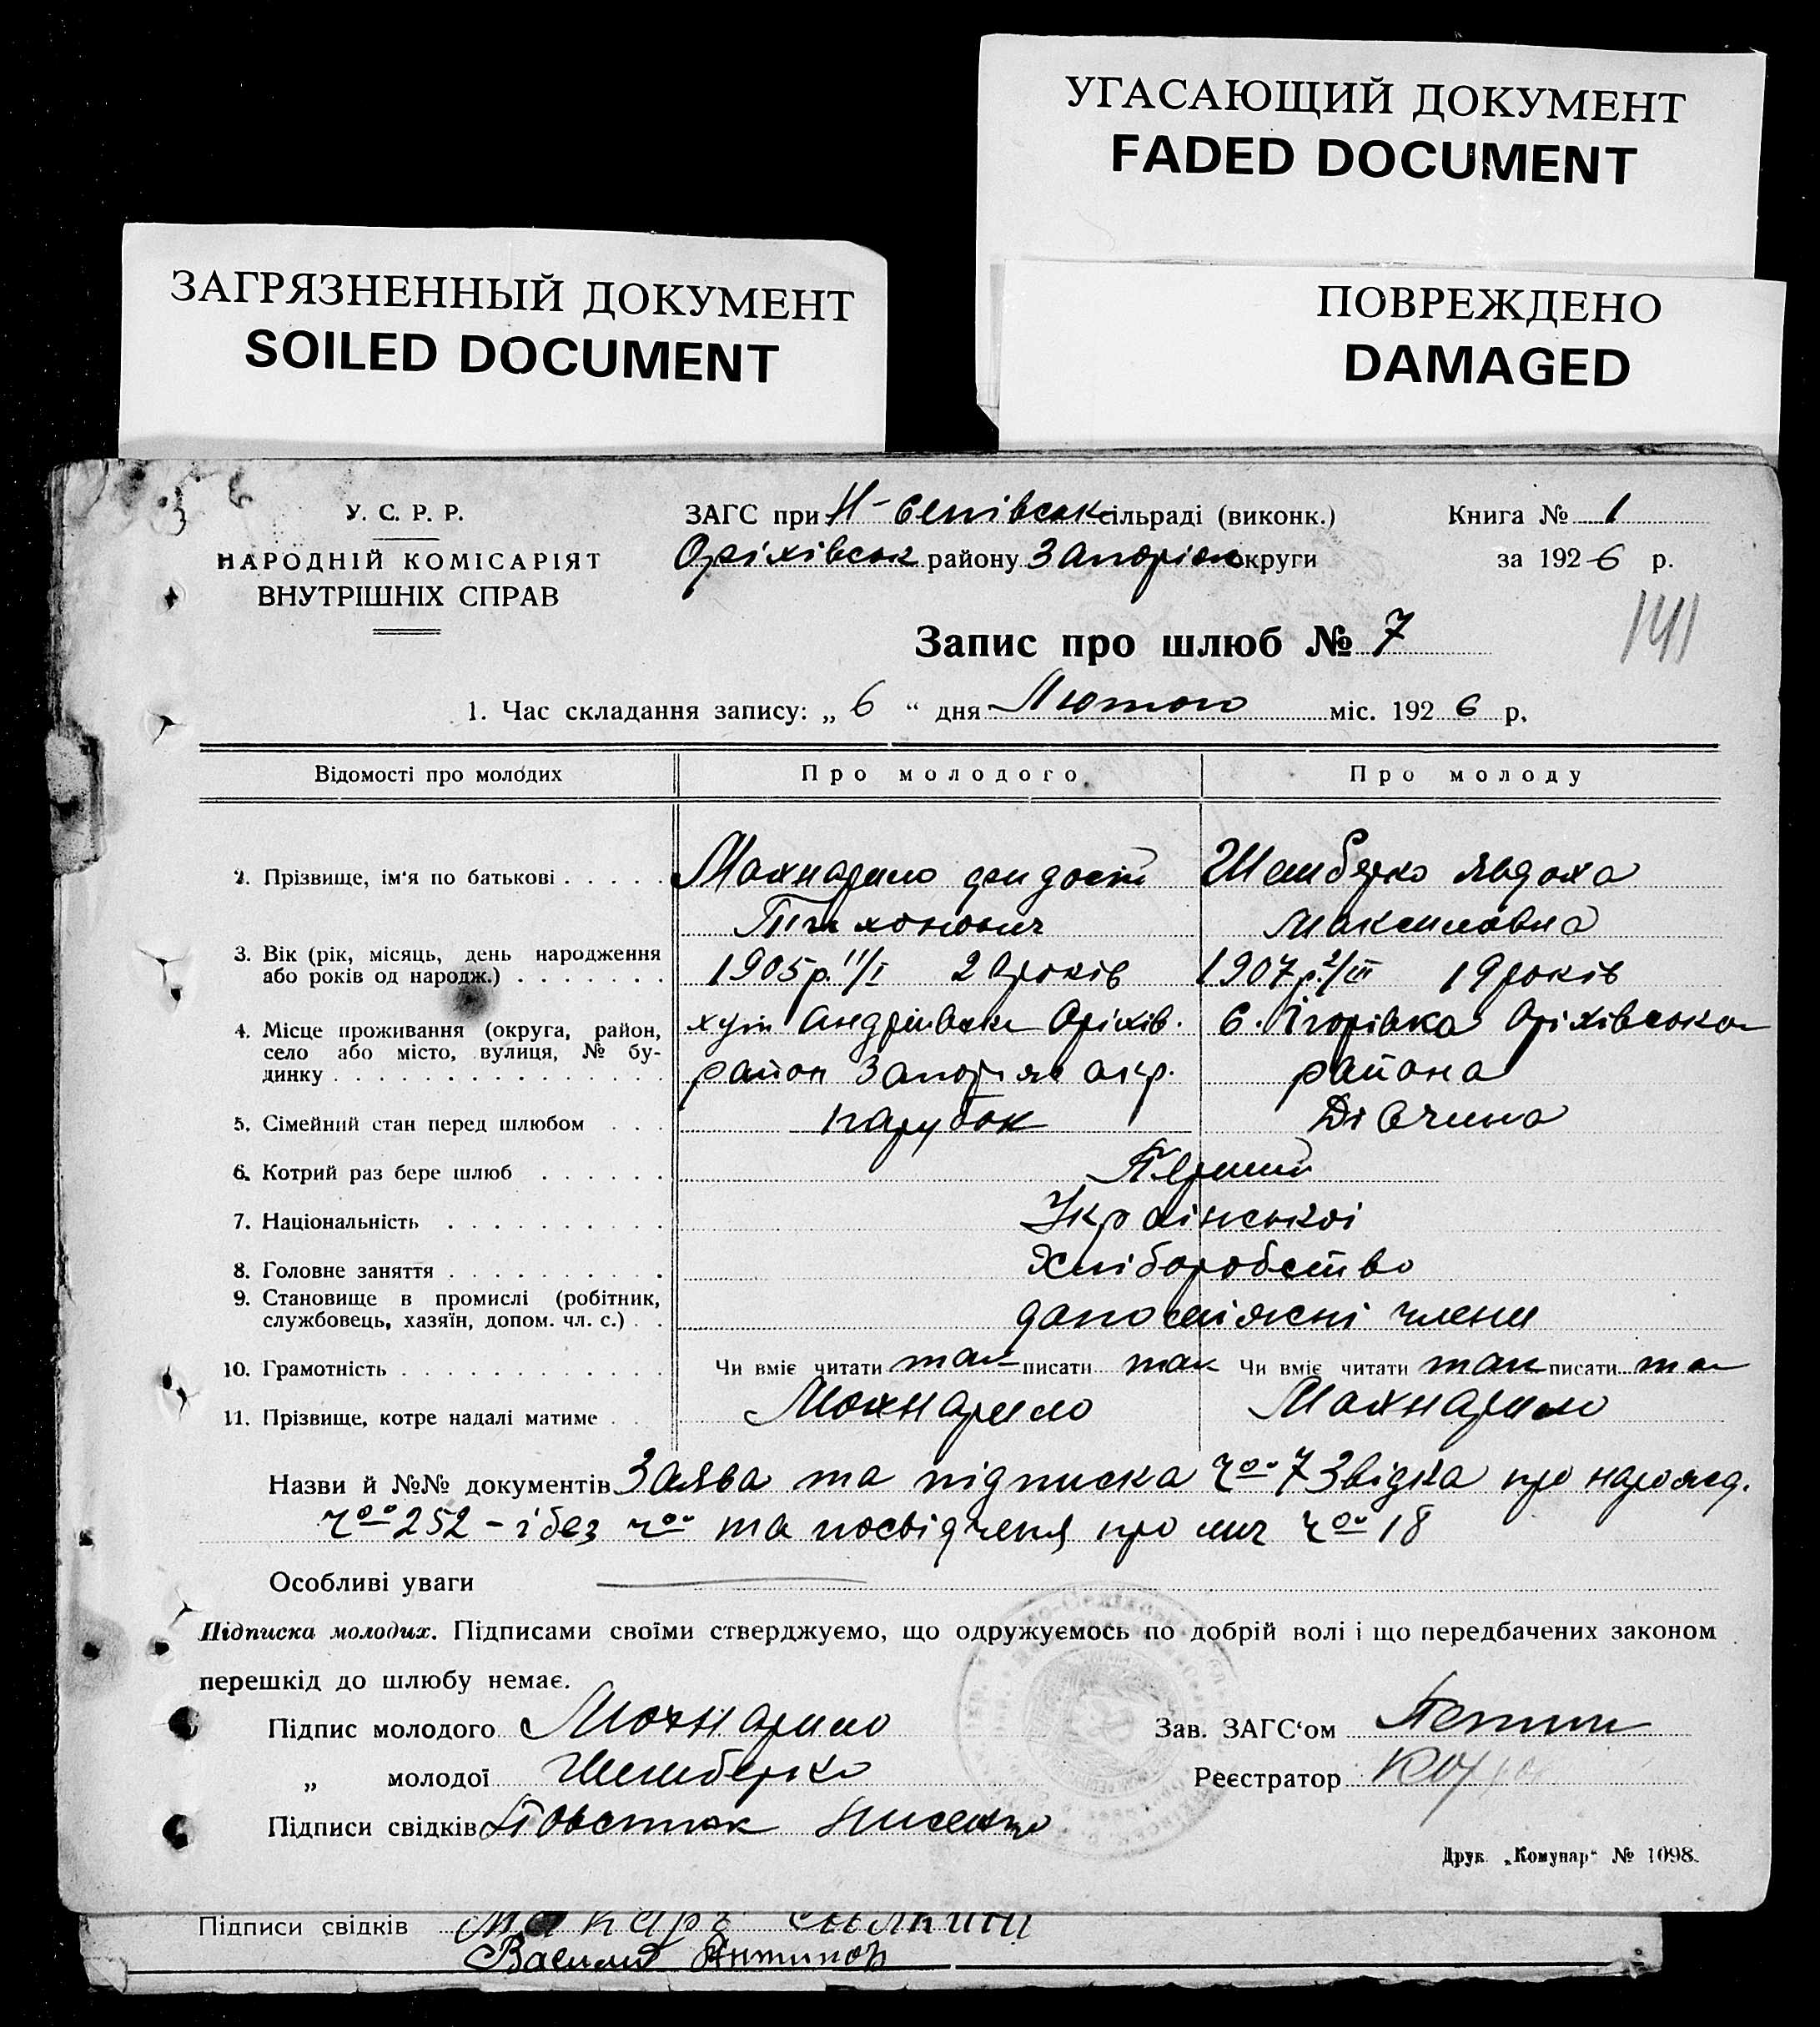 УГАСАЮЩИЙ ДОКУМЕНТ
FADED DOCUMENT
ЗАГРЯЗНЕННЫЙ ДОКУМЕНТ
SOILED DOCUMENT
ПОВРЕЖДЕНО
DAMAGED
У. С. Р. Р.
НАРОДНІЙ КОМІСАРІЯТ
ВНУТРІШНІХ СПРАВ
ЗАГС при сільраді (виконк.)
Оріхівськ району Запоріж округи
Книга № 1
за 1926 р.
141
Запис про шлюб № 7
1. Час складання запису: „ 6 “ дня Лютого міс. 1926 р.
Відомості про молодих Про молодого Про молоду
2. Прізвище, ім'я по батькові Махнарило Шемберко Явдоха
Тихонович Максимовна
3. Вік (рік, місяць, день народження
або років од народж.) 1905 р. 11/I років 1907 р. 2/III 19 років
4. Місце проживання (округа, район,
село або місто, вулиця, № бу-
динку
хут Андріївка Оріхів. с. Ігорівка Оріхівсько
район Запоріж окр. района
5. Сімейний стан перед шлюбом парубок Дівчина
6. Котрий раз бере шлюб Перший
7. Національність Українськоі
8. Головне заняття Хліборобство
9. Становище в промислі (робітник,
службовець, хазяїн, допом. чл. с.) члени
10. Грамотність Чи вміє читати так писати так Чи вміє читати так писати та
11. Прізвище, котре надалі матиме Махнарило Махнарило
Назви й №№ документів Заява та підписка ч° 7 Звідка про народ.
ч° 252 - і без ч° та посвідченя про ч° 18
Особливі уваги
Підписка молодих. Підписами своїми стверджуємо, що одружуємось по добрій волі і що передбачених законом
перешкід до шлюбу немає.
Підпис молодого Махнарило Зав. ЗАГС‘ом
„ молодої Шемберко Реєстратор
Підписи свідків
Друк. „Комунар“ № 1098.
Підписи свідків Макаръ
Василий Антипов